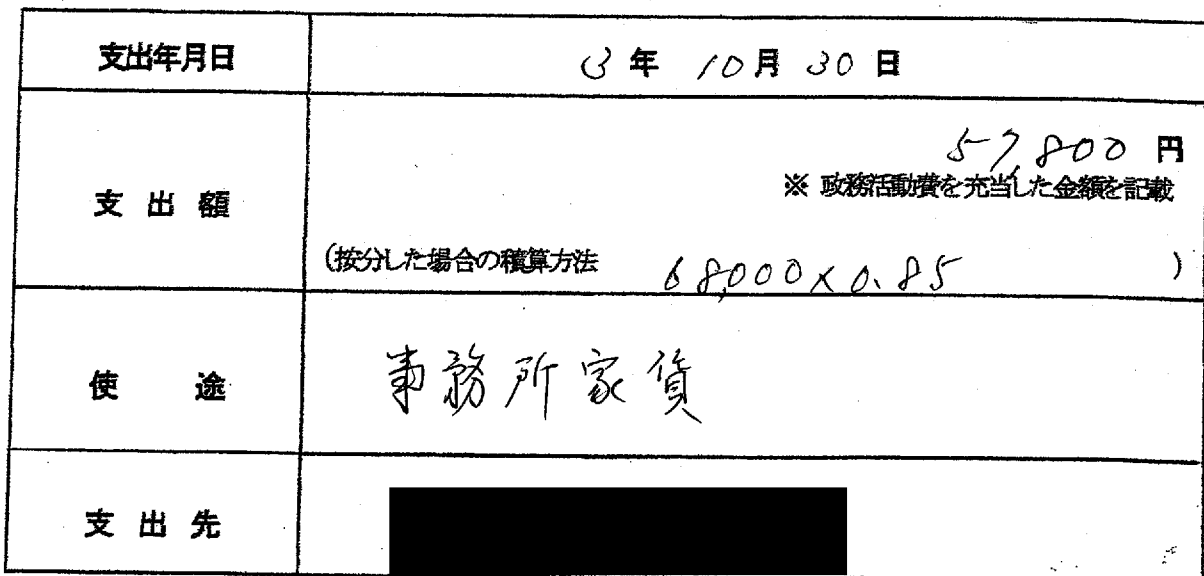 支出年月日 3年 10月 30日
57,800 円
※ 政務活動費を充当した金額を記載
支出額
(按分した場合の積算方法 68,000×0.85 )
使途 事務所家賃
支出先